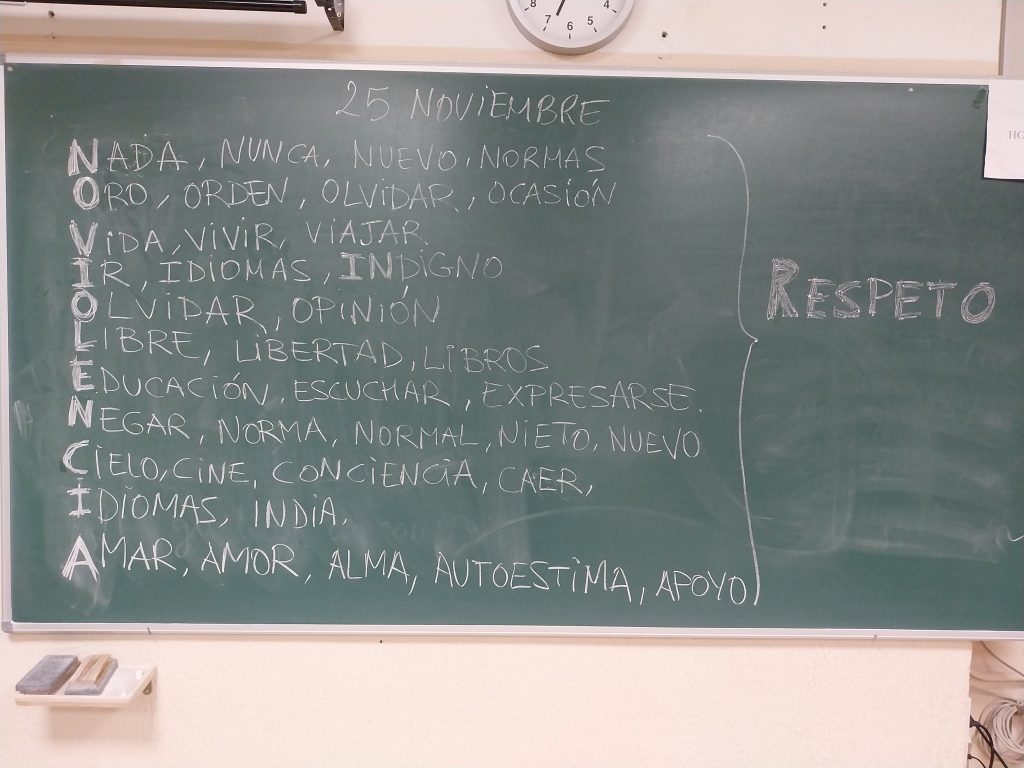 8 7 6 5 4
25 NOVIEMBRE
HO
NADA, NUNCA, NUEVO, NORMAS
ORO, ORDEN, OLVIDAR, OCASIÓN
VIDA, VIVIR, VIAJAR
IR, IDIOMAS, INDIGNO
OLVIDAR, OPINIÓN
LIBRE, LIBERTAD, LIBROS
EDUCACIÓN, ESCUCHAR, EXPRESARSE.
NEGAR, NORMA, NORMAL, NIETO, NUEVO
CIELO, CINE, CONCIENCIA, CAER,
IDIOMAS, INDIA,
AMAR, AMOR, ALMA, AUTOESTIMA, APOYO
RESPETO